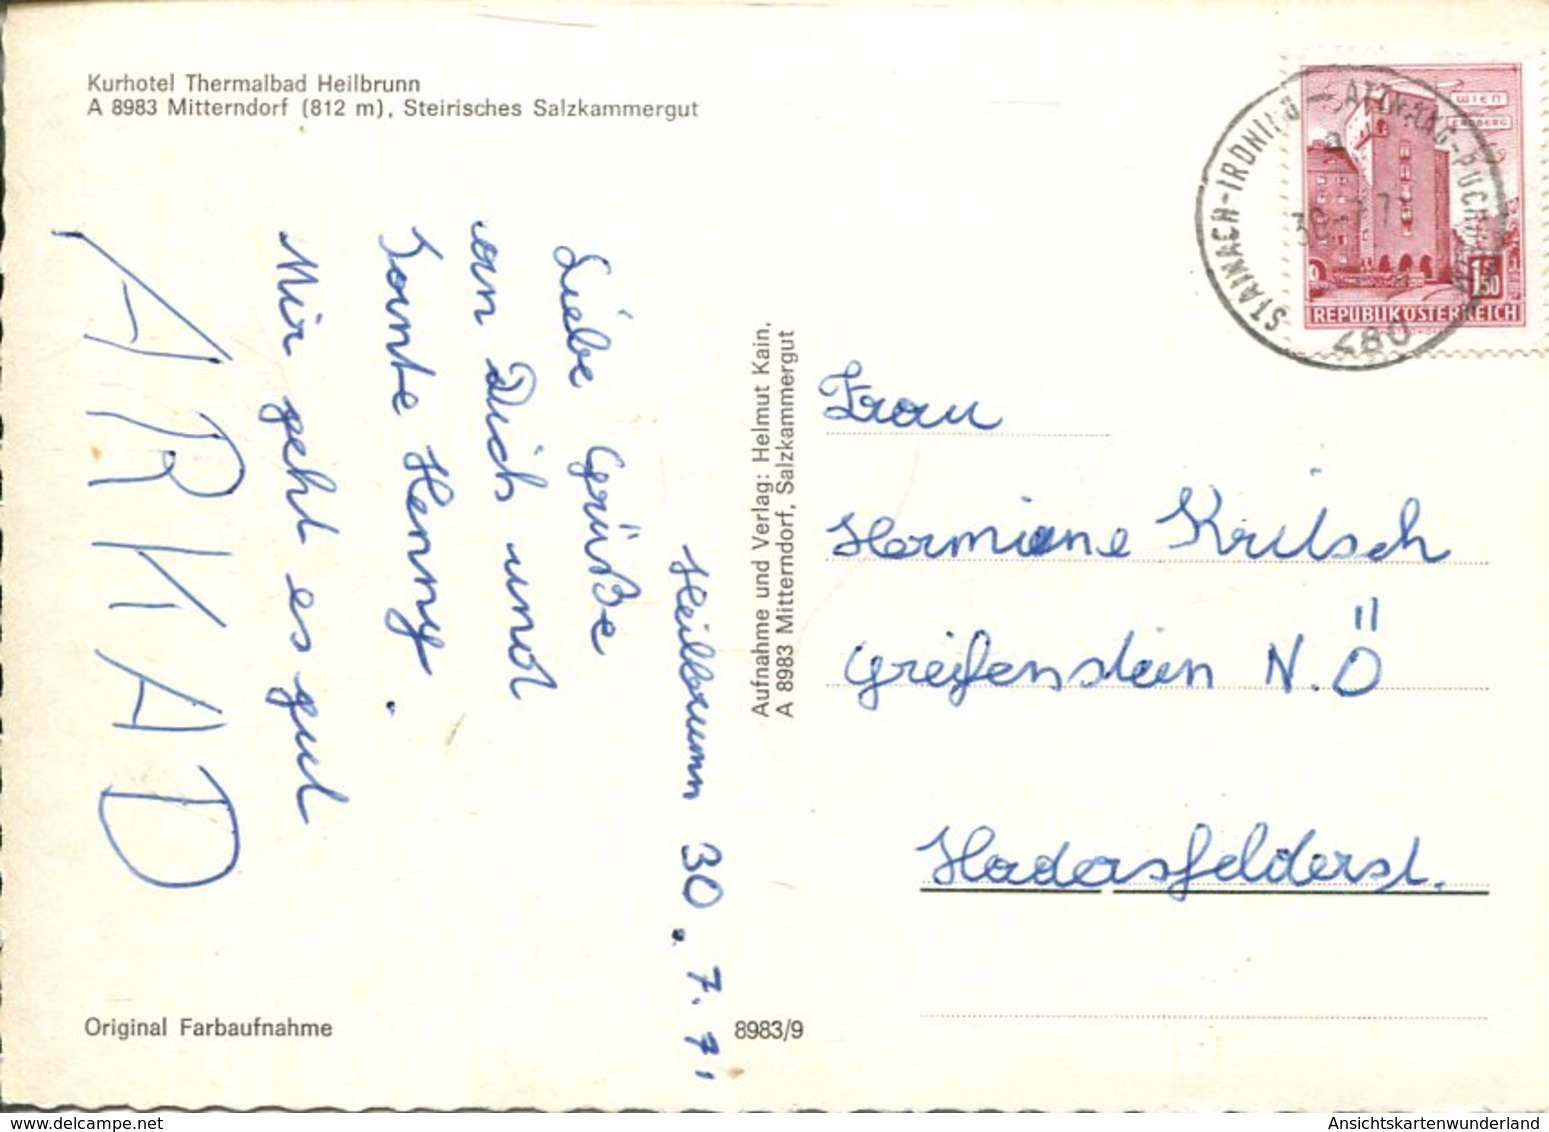 Kurhotel Thermalbad Heilbrunn
A 8983 Mitterndorf (812 m), Steirisches Salzkammergut
Heilbrunn 30. 7. 71
Liebe Grüße
an Dich und
Tante Henny.
Mir geht es gut
ARKAD
Original Farbaufnahme
8983/9
Aufnahme und Verlag: Helmut Kain,
A 8983 Mitterndorf, Salzkammergut
STAINACH-IRDNING — ATTNANG-PUCHHEIM
30.-7.71
480
WIEN
ERDBERG
1.50
REPUBLIK ÖSTERREICH
Frau
Hermine Kritsch
Greifenstein N.Ö
Hadersfelderst.
Ansichtskartenwunderland
akpool.com